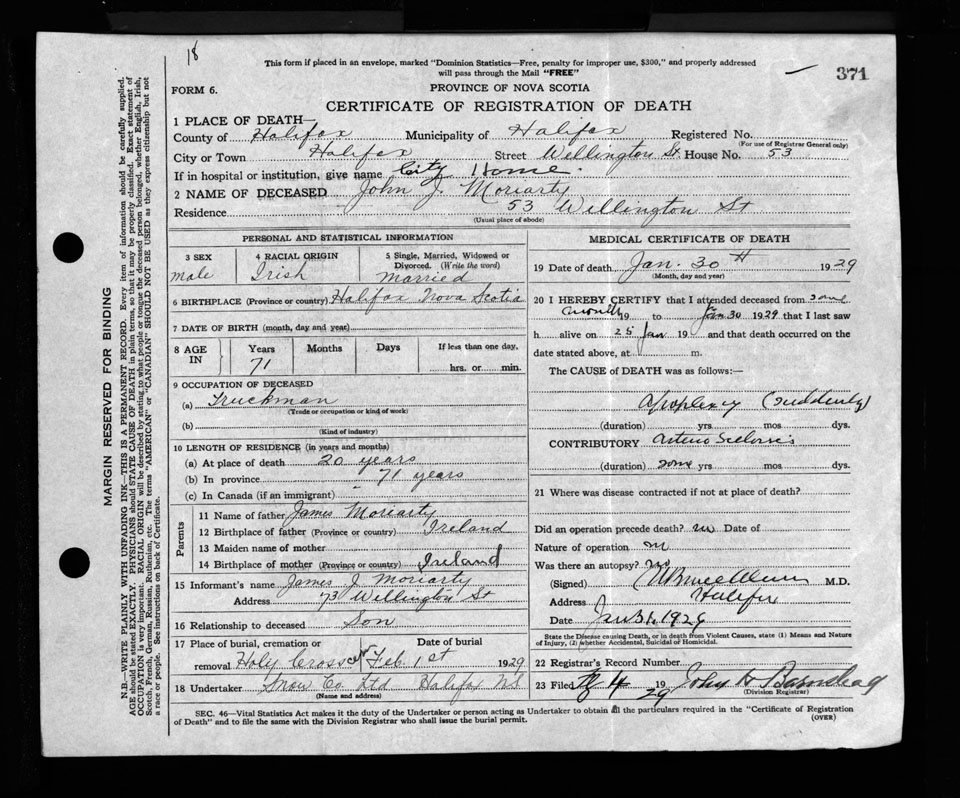 18
This form if placed in an envelope, marked "Dominion Statistics—Free, penalty for improper use, $300," and properly addressed
will pass through the Mail "FREE"
371
FORM 6.
PROVINCE OF NOVA SCOTIA
CERTIFICATE OF REGISTRATION OF DEATH
1 PLACE OF DEATH—
County of Halifax Municipality of Halifax Registered No.
(For use of Registrar General only)
City or Town Halifax Street Wellington St. House No. 53
If in hospital or institution, give name City Home.
2 NAME OF DECEASED John J. Moriarty
Residence 53 Wellington St
(Usual place of abode)
PERSONAL AND STATISTICAL INFORMATION
3 SEX male
4 RACIAL ORIGIN Irish
5 Single, Married, Widowed or Divorced. (Write the word) Married
6 BIRTHPLACE (Province or country) Halifax Nova Scotia
7 DATE OF BIRTH (month, day and year)
8 AGE IN Years Months Days If less than one day,
71 hrs. or min.
9 OCCUPATION OF DECEASED
(a) Truckman
(Trade or occupation or kind of work)
(b)
(Kind of industry)
10 LENGTH OF RESIDENCE (in years and months)
(a) At place of death 20 years
(b) In province 71 years
(c) In Canada (if an immigrant)
Parents
11 Name of father James Moriarty
12 Birthplace of father (Province or country) Ireland
13 Maiden name of mother
14 Birthplace of mother (Province or country) Ireland
15 Informant's name James J. Moriarty
Address 73 Wellington St
16 Relationship to deceased Son
17 Place of burial, cremation or Date of burial
removal Holy Cross Feb 1st 1929
18 Undertaker Snow Co. Ltd Halifax NS
(Name and address)
MEDICAL CERTIFICATE OF DEATH
19 Date of death Jan. 30th 1929
(Month, day and year)
20 I HEREBY CERTIFY that I attended deceased from some
months 19 to Jan 30 1929 that I last saw
h alive on 25 Jan 19 and that death occurred on the
date stated above, at m.
The CAUSE of DEATH was as follows:—
Apoplexy (suddenly)
(duration) yrs mos dys.
CONTRIBUTORY
(duration) some yrs mos dys.
21 Where was disease contracted if not at place of death?
Did an operation precede death? no Date of
Nature of operation
Was there an autopsy? no
(Signed) M.D.
Address Halifax
Date Jan 31, 1929
State the Disease causing Death, or in death from Violent Causes, state (1) Means and Nature
of Injury, (2) whether Accidental, Suicidal or Homicidal.
22 Registrar's Record Number
23 Filed 4 1929 John H Barnstead
(Division Registrar)
SEC. 46—Vital Statistics Act makes it the duty of the Undertaker or person acting as Undertaker to obtain all the particulars required in the "Certificate of Registration
of Death" and to file the same with the Division Registrar who shall issue the burial permit.
(OVER)
MARGIN RESERVED FOR BINDING
N.B.—WRITE PLAINLY WITH UNFADING INK—THIS IS A PERMANENT RECORD. Every item of information should be carefully supplied.
AGE should be stated EXACTLY. PHYSICIANS should STATE CAUSE OF DEATH in plain terms, so that it may be properly classified. Exact statement of
OCCUPATION is very important. RACIAL ORIGIN will be described by stating to what people or tongue the deceased person belonged, whether English, Irish,
Scotch, French, German, Russian, Ruthenian, etc. The terms "AMERICAN" or "CANADIAN" SHOULD NOT BE USED as they express citizenship but not
a race or people. See instructions on back of Certificate.